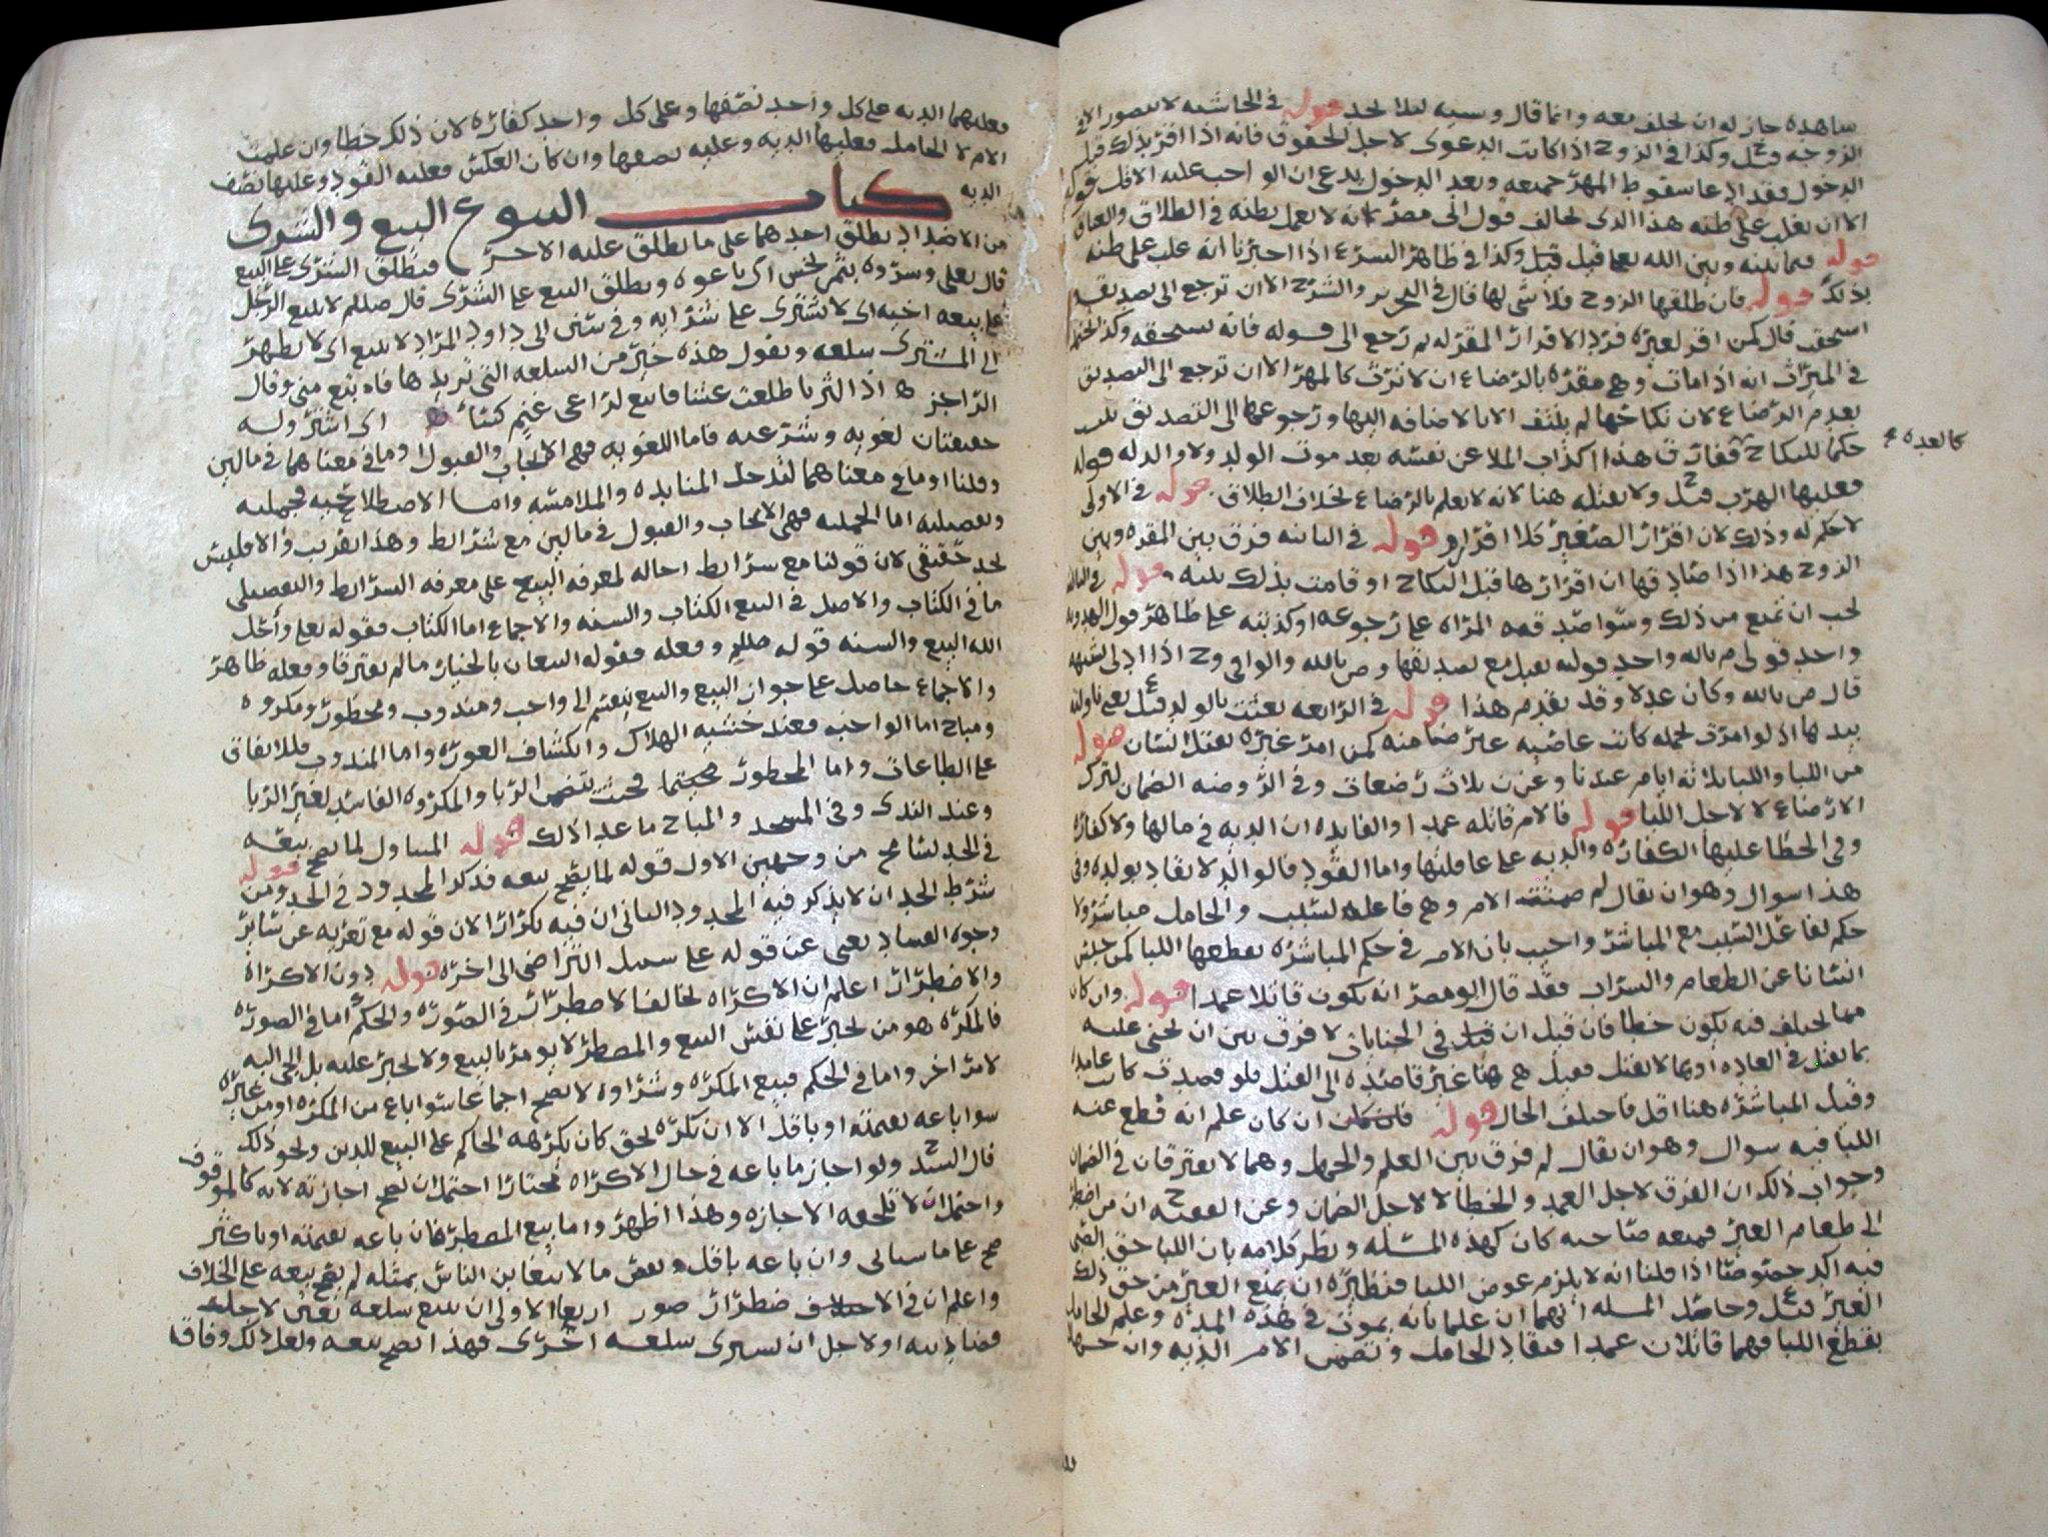 ساهده جاز له ان يحلف معه وانما قال وسيه لئلا يحد قوله في الحاشيه لا يتصور الا في
الزوجه قيل وكذا في الزوج اذا كانت الدعوى لاجل الحقوق فانه اذا اقر بذلك قبل
الدخول فقد ادعا سقوط المهر جميعه وبعد الدخول يدعي ان الواجب عليه الاقل قوله
الا ان يغلب على ظنه هذا الذي يخالف قول ابي مضر بانه لا يعمل بظنه في الطلاق والعتاق
قوله فيما بينه وبين الله تعالى قيل وكذا في ظاهر الشرع اذا اخبرنا انه غلب على ظنه
بذلك قوله فان طلقها الزوج فلا شي لها قال في التحرير والشرح الا ان ترجع الى تصديقه
استحقت قال كمن اقر لغيره فرد الاقرار المقر له ثم رجع الى قوله فانه يستحقه وكذا الحكم
في الميراث انه اذا مات وهي مقره بالرضاع ان لا ترث كالمهر الا ان ترجع الى التصديق
بعدم الرضاع لان نكاحها لم ينتف الا بالاضافه اليها ورجوعها الى التصديق يثبت
حكما للنكاح ففارق هذا اكذاب الملاعن نفسه بعد موت الولد ولا ولد له قوله
كالعده
فعليها الهرب قيل ولا تقتله هنا لانه لا يعلم بالرضاع بخلاف الطلاق قوله في الاولى
لا حكم له وذلك لان اقرار الصغير كلا اقرار قوله في الثانيه فرق بين المقره وبين
الزوج هذا اذا صادقها ان اقرارها قبل النكاح او قامت بذلك بينه قوله في الثالثه
يجب ان تمنع من ذلك وسوا صدقته المراه على رجوعه او كذبته على ظاهر قول الهدويه
واحد قولي م بالله واحد قوليه يقبل مع تصديقها وص بالله والوافي وح اذا ادلى بشبهه
قال ص بالله وكان عدلا وقد تقدم هذا قوله في الرابعه بعثت بالولد قيل يعني ناولته
بيدها اذ لو امرت بحمله كانت عاصيه غير ضامنه كمن امر غيره بقتل انسان قوله
من اللبا واللبا ثلاثه ايام عندنا وعن ن ثلاث رضعات وفي الروضه الضمان لترك
الارضاع لا لاجل اللبا قوله فالام قاتله عمدا والفايده ان الديه في مالها ولا كفاره
وفي الخطا عليها الكفاره والديه على عاقلتها واما القود فالوالد لا يقاد بولده وفي
هذا سوال وهو ان يقال لم ضمنت الام وهي فاعله لسبب والحامل مباشر ولا
حكم لفاعل السبب مع المباشر واجيب بان الام في حكم المباشره بقطعها اللبا كمن حبس
انسانا عن الطعام والشراب فقد قال ابو مضر انه يكون قاتلا عمدا قوله وان كان
مما يختلف فيه يكون خطا فان قيل ان قيل في الجنايات لا فرق بين ان يجني عليه
بما يقتل في العاده او بما لا يقتل فقيل هي هنا غير قاصده الى القتل فلو قصدت كانت عامده
وقيل المباشره هنا اقل فاختلف الحال قوله فان كان علم انه قطع عنه
اللبا فيه سوال وهو ان يقال لم فرق بين العلم والجهل وهما لا يفترقان في الضمان
وجواب ذلك ان الفرق لاجل العمد والخطا لا لاجل الضمان وعن الفقيه ح ان من اضطر
الى طعام الغير فمنعه صاحبه كان كهذه المسله ونظر كلامه بان اللبا حق الصبي
فيه اكد خصوصا اذا قلنا انه لا يلزم عوض اللبا فنظيره ان يمنع الغير من حق ذلك
الغير قيل وحاصل المسله انهما ان علما بانه يموت في هذه المده وعلم الحامل
بقطع اللبا فهما قاتلان عمدا فيقاد الحامل وتضمن الام الديه وان جهلا
فعليهما الديه على كل واحد نصفها وعلى كل واحد كفاره لان ذلك خطا وان علمت
الام لا الحامل فعليها الديه وعليه نصفها وان كان العكس فعليه القود وعليها نصف
الديه
كتاب البيوع البيع والشرى
من الاضداد يطلق احدهما على ما يطلق عليه الاخر فيطلق الشرى على البيع
قال تعالى وشروه بثمن بخس اي باعوه ويطلق البيع على الشرى قال صلعم لا يبيع الرجل
على بيع اخيه اي لا يشترى على شرايه وفي سنن ابي داود المراد لا يبيع اي لا يظهر
الى المشتري سلعه ويقول هذه خير من السلعه التي تريدها فاه بيع مني وقال
الراجز اذا الثريا طلعت عشا فابتع لراعي غنم كسا اي اشتر وله
حقيقتان لغويه وشرعيه فاما اللغويه فهي الايجاب والقبول او ما في معناهما في مالين
وقلنا او ما في معناهما لتدخل المنابذه والملامسه واما الاصطلاحيه فجمليه
وتفصيليه اما الجمليه فهي الايجاب والقبول في مالين مع شرايط وهذا تقريب والا فليس
بحد حقيقي لان قولنا مع شرايط احاله لمعرفه البيع على معرفه الشرايط والتفصيلي
ما في الكتاب والاصل في البيع الكتاب والسنه والاجماع اما الكتاب فقوله تعالى واحل
الله البيع والسنه قوله صللم وفعله فقوله البيعان بالخيار ما لم يفترقا وفعله ظاهر
والاجماع حاصل على جواز البيع والبيع ينقسم الى واجب ومندوب ومحظور ومكروه
ومباح اما الواجب فعند خشيه الهلاك وانكشاف العوره واما المندوب فللانفاق
على الطاعات واما المحظور فحيث يتضمن الربا والمكروه الفاسد لغير الربا
وعند الندى وفي المسجد والمباح ما عدا ذلك قوله المتناول لما يصح بيعه
في الحد تسامح من وجهين الاول قوله لما يصح بيعه فذكر المحدود في الحد ومن قوله
شرط الحد ان لا يذكر فيه المحدود الثاني ان فيه تكرارا لان قوله مع تعريه عن ساير
وجوه الفساد يغني عن قوله على سبيل التراضي الى اخره قوله دون الاكراه
والاضطرار اعلم ان الاكراه يخالف الاضطرار في الصوره والحكم اما في الصوره
فالمكره هو من يجبر على نفس البيع والمضطر لا يومر بالبيع ولا يجبر عليه بل الجي اليه
لامر اخر واما في الحكم فبيع المكره وشراوه لا يصح اجماعا سوا باع من المكره او من غيره
سوا باعه بقيمته او باقل الا ان يكره لحق كان يكرهه الحاكم على البيع للدين ونحو ذلك
قال السيد ح ولو اجاز ما باعه في حال الاكراه مختارا احتمل ان تصح اجازته لانه كالموقوف
واحتمل ان لا تلحقه الاجازه وهذا اظهر واما بيع المضطر فان باعه بقيمته او باكثر
صح على ما سياتي وان باعه باقل وبعض ما لا يتغابن الناس بمثله لم يصح بيعه على الخلاف
واعلم ان في الاضطرار صور اربعا الاولى ان يبيع سلعه بغبن لاجل
قضا دينه او لاجل ان يشتري سلعه اخرى فهذا يصح بيعه ولعل ذلك وفاقا